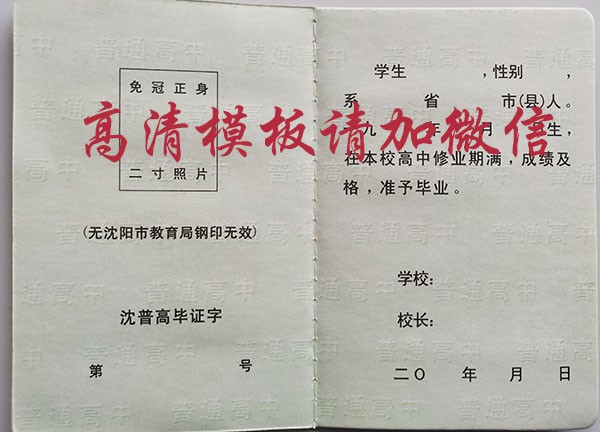 免冠正身
二寸照片
(无沈阳市教育局钢印无效)
沈普高毕证字
第 号
学生 ,性别 ,
系 省 市(县)人。
九 年 月 生,
在本校高中修业期满,成绩及
格,准予毕业。
学校:
校长:
二〇 年 月 日
高清模板请加微信
普通高中